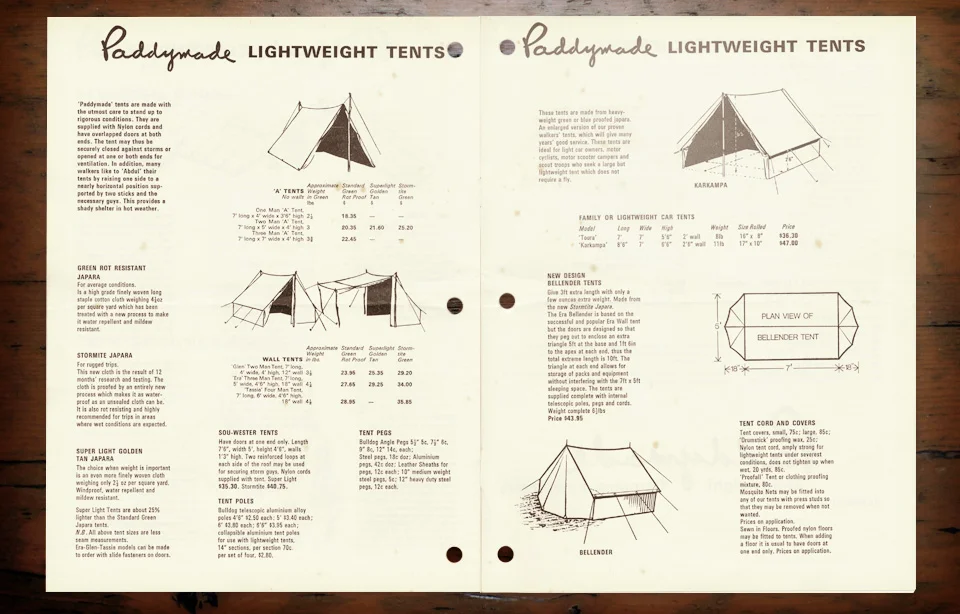 Paddymade LIGHTWEIGHT TENTS
'Paddymade' tents are made with
the utmost care to stand up to
rigorous conditions. They are
supplied with Nylon cords and
have overlapped doors at both
ends. The tent may thus be
securely closed against storms or
opened at one or both ends for
ventilation. In addition, many
walkers like to 'Abdul' their
tents by raising one side to a
nearly horizontal position sup-
ported by two sticks and the
necessary guys. This provides a
shady shelter in hot weather.
'A' TENTS Approximate Standard Superlight Storm-
No walls Weight Green Golden tite
in Green Rot Proof Tan Green
lbs $ $
One Man 'A' Tent,
7' long x 4' wide x 3'6" high 2½ 18.35 — —
Two Man 'A' Tent,
7' long x 5' wide x 4' high 3 20.35 21.60 25.20
Three Man 'A' Tent,
7' long x 7' wide x 4' high 3¾ 22.45 — —
GREEN ROT RESISTANT
JAPARA
For average conditions.
Is a high grade finely woven long
staple cotton cloth weighing 4½oz
per square yard which has been
treated with a new process to make
it water repellent and mildew
resistant.
STORMITE JAPARA
For rugged trips.
This new cloth is the result of 12
months' research and testing. The
cloth is proofed by an entirely new
process which makes it as water-
proof as an unsealed cloth can be.
It is also rot resisting and highly
recommended for trips in areas
where wet conditions are expected.
SUPER LIGHT GOLDEN
TAN JAPARA
The choice when weight is important
is an even more finely woven cloth
weighing only 2½ oz per square yard.
Windproof, water repellent and
mildew resistant.
Super Light Tents are about 25%
lighter than the Standard Green
Japara tents.
N.B. All above tent sizes are less
seam measurements.
Era-Glen-Tassie models can be made
to order with slide fasteners on doors.
WALL TENTS Approximate Standard Superlight Storm-
Weight Green Golden tite
in lbs. Rot Proof Tan Green
'Glen' Two Man Tent, 7' long,
4' wide, 4' high, 12" wall 3¾ 23.95 25.35 29.20
'Era' Three Man Tent, 7' long,
5' wide, 4'6" high, 18" wall 4¼ 27.65 29.25 34.00
'Tassie' Four Man Tent,
7' long, 6' wide, 4'6" high,
18" wall 4½ 28.95 — 35.85
SOU-WESTER TENTS
Have doors at one end only. Length
7'6", width 5', height 4'6", walls
1'3" high. Two reinforced loops at
each side of the roof may be used
for securing storm guys. Nylon cords
supplied with tent. Super Light
$35.30. Stormtite $40.75.
TENT POLES
Bulldog telescopic aluminium alloy
poles 4'6" $2.50 each; 5' $3.40 each;
6' $3.80 each; 6'6" $3.95 each;
collapsible aluminium tent poles
for use with lightweight tents,
14" sections, per section 70c
per set of four, $2.80.
TENT PEGS
Bulldog Angle Pegs 5½" 5c, 7½" 6c,
9" 8c, 12" 14c, each;
Steel pegs, 18c doz; Aluminium
pegs, 42c doz; Leather Sheaths for
pegs, 12c each; 10" medium weight
steel pegs, 5c; 12" heavy duty steel
pegs, 12c each.
Paddymade LIGHTWEIGHT TENTS
These tents are made from heavy-
weight green or blue proofed japara.
An enlarged version of our proven
walkers' tents, which will give many
years' good service. These tents are
ideal for light car owners, motor
cyclists, motor scooter campers and
scout troops who seek a large but
lightweight tent which does not
require a fly.
74"
KARKUMPA
FAMILY OR LIGHTWEIGHT CAR TENTS
Model Long Wide High Weight Size Rolled Price
'Toora' 7' 7' 5'6" 2' wall 8lb 16" x 8" $36.30
'Karkumpa' 8'6" 7' 6'6" 2'6" wall 11lb 17" x 10" $47.00
NEW DESIGN
BELLENDER TENTS
Give 3ft extra length with only a
few ounces extra weight. Made from
the new Stormtite Japara.
The Era Bellender is based on the
successful and popular Era Wall tent
but the doors are designed so that
they peg out to enclose an extra
triangle 5ft at the base and 1ft 6in
to the apex at each end, thus the
total extreme length is 10ft. The
triangle at each end allows for
storage of packs and equipment
without interfering with the 7ft x 5ft
sleeping space. The tents are
supplied complete with internal
telescopic poles, pegs and cords.
Weight complete 6½lbs
Price $43.95
PLAN VIEW OF
BELLENDER TENT
5'
18" 7' 18"
BELLENDER
TENT CORD AND COVERS
Tent covers, small, 75c; large, 85c;
'Drumstick' proofing wax, 25c;
Nylon tent cord, amply strong for
lightweight tents under severest
conditions, does not tighten up when
wet, 20 yards, 85c.
'Proofall' Tent or clothing proofing
mixture, 80c.
Mosquito Nets may be fitted into
any of our tents with press studs so
that they may be removed when not
wanted.
Prices on application.
Sewn in Floors. Proofed nylon floors
may be fitted to tents. When adding
a floor it is usual to have doors at
one end only. Prices on application.